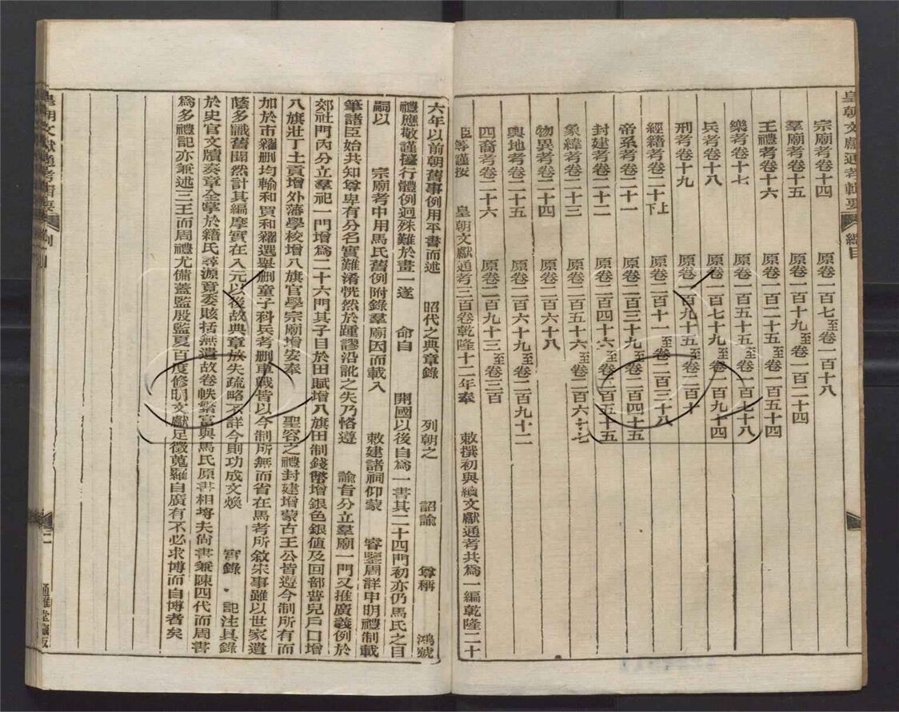 皇朝文獻通考輯要 總目
宗廟考卷十四 原卷一百七至卷一百十八
羣廟考卷十五 原卷一百十九至卷一百二十四
王禮考卷十六 原卷一百二十五至卷一百五十四
樂考卷十七 原卷一百五十五至卷一百七十八
兵考卷十八 原卷一百七十九至卷一百九十四
刑考卷十九 原卷一百九十五至卷二百十
經籍考卷二十上下 原卷二百十一至卷二百三十八
帝系考卷二十一 原卷二百三十九至卷二百四十五
封建考卷二十二 原卷二百四十六至卷二百五十五
象緯考卷二十三 原卷二百五十六至卷二百六十七
物異考卷二十四 原卷二百六十八
輿地考卷二十五 原卷二百六十九至卷二百九十二
四裔考卷二十六 原卷二百九十三至卷三百
臣等謹按 皇朝文獻通考三百卷乾隆十二年奉 敕撰初與續文獻通考共為一編乾隆二十
六年以前朝舊事例用平書而述 昭代之典章錄 列朝之 詔諭 尊稱 鴻號
禮應敬謹擡行體例迥殊難於畫一遂 命自 開國以後自為一書其二十四門初亦仍馬氏之目
嗣以 宗廟考中用馬氏舊例附錄羣廟因而載入 敕建諸祠仰蒙 睿鑒周詳申明禮制載
筆諸臣始共知尊卑有分名實難淆恍然於踵謬沿訛之失乃恪遵 諭旨分立羣廟一門又推廣義例於
郊社門內分立羣祀一門增為二十六門其子目於田賦增八旗田制錢幣增銀色銀值及回部普兒戶口增
八旗壯丁土貢增外藩學校增八旗官學宗廟增安奉 聖容之禮封建增蒙古王公皆遵今制所有而
加於市糴刪均輸和買和糴選舉刪童子科兵考刪車戰皆以今制所無而省在馬考所敘宋事雖以世家遺
蔭多識舊聞然計其編摩實在入元以後故典章放失疏略不詳今則功成文煥 實錄 記注具錄
於史官文牘奏章全掌於籍氏尋源竟委賅括無遺故卷帙繁富與馬氏原書相埒夫尚書兼陳四代而周書
為多禮記亦兼述三王而周禮尤備蓋監殷監夏百度修明文獻足徵蒐羅自廣有不必求博而自博者矣
皇朝文獻通考輯要 例目 二